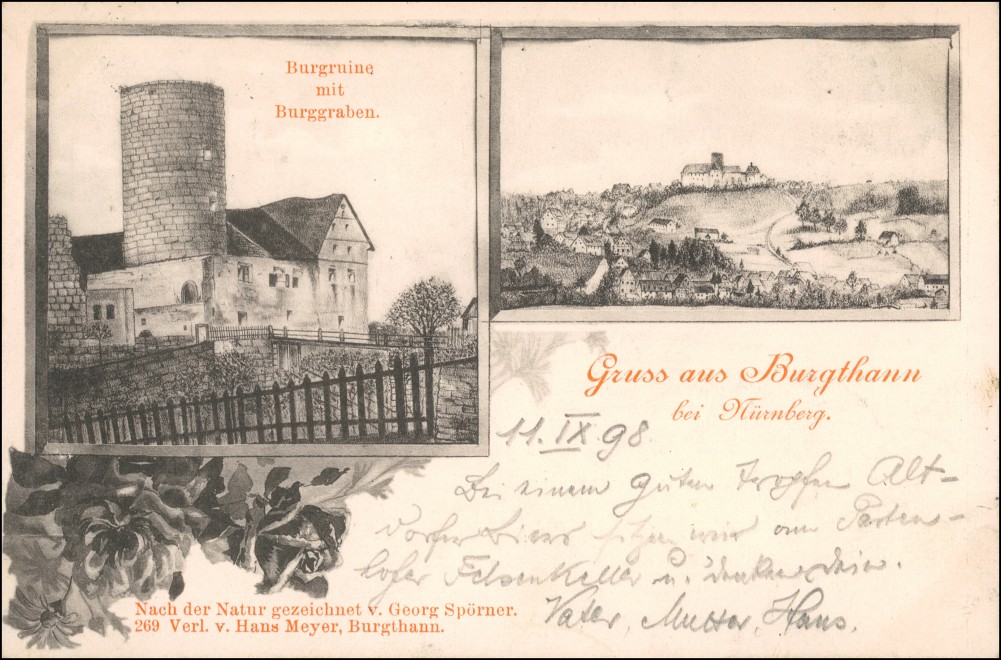 Burgruine
mit
Burggraben.
Gruss aus Burgthann
bei Nürnberg.
11. IX 98.
Bei einem guten Tropfen Alt-
dorfer Biers sitzen wir am
hofer Felsenkeller u. denken dein.
Vater, Mutter, Hans.
Nach der Natur gezeichnet v. Georg Spörner.
269 Verl. v. Hans Meyer, Burgthann.